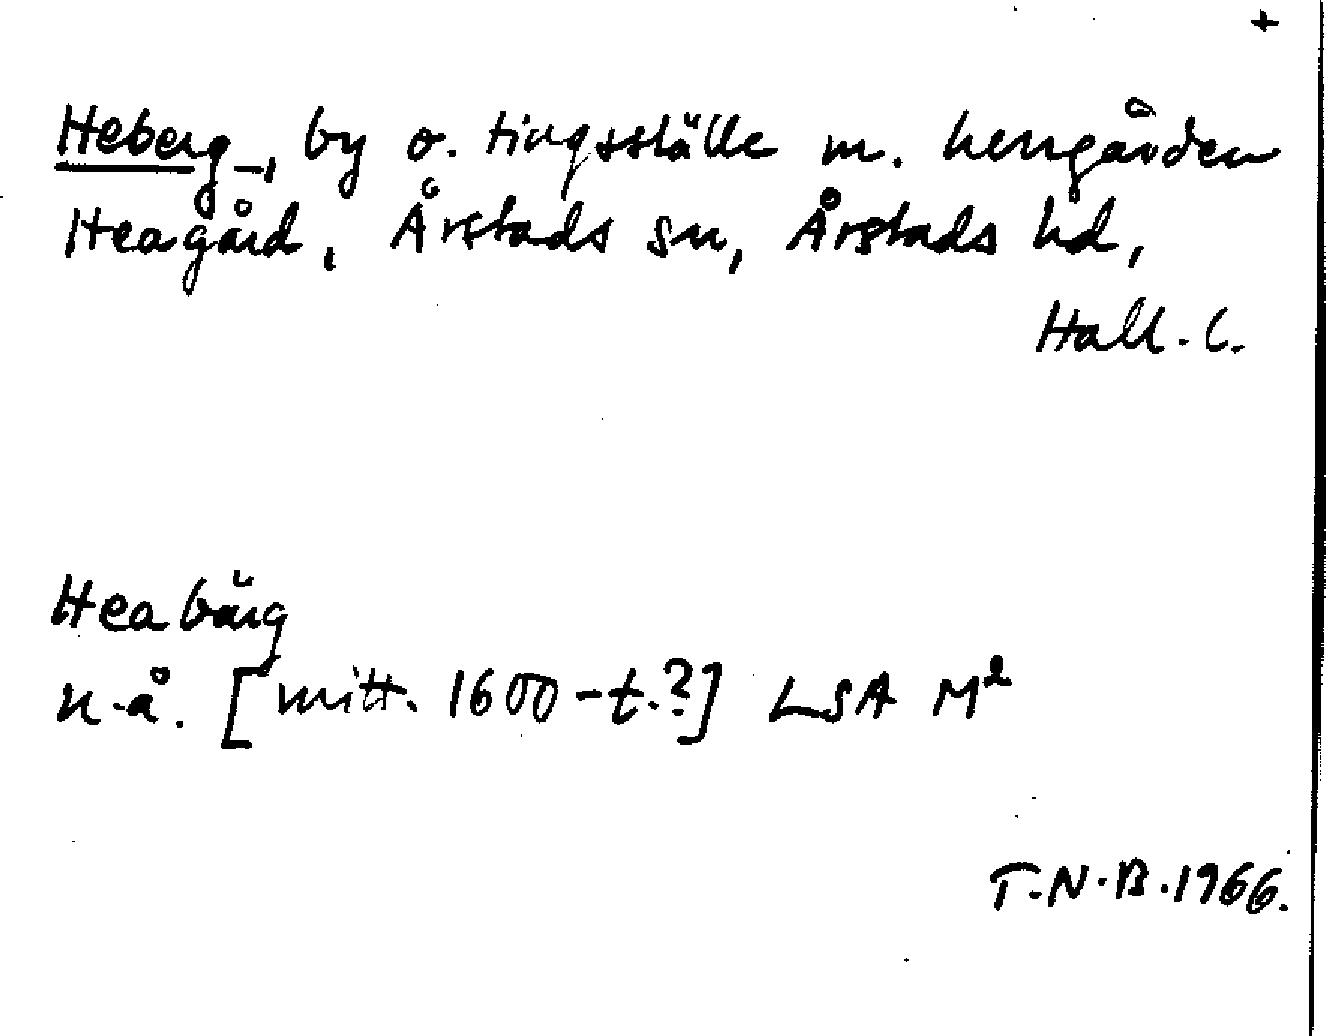 +
Heberg, by o. tingsställe m. herrgården
Heagård, Årstads sn, Årstads hd,
Hall. l.
Heabärg
u.å. [mitt. 1600-t.?] LSA M²
T.N.B. 1966.